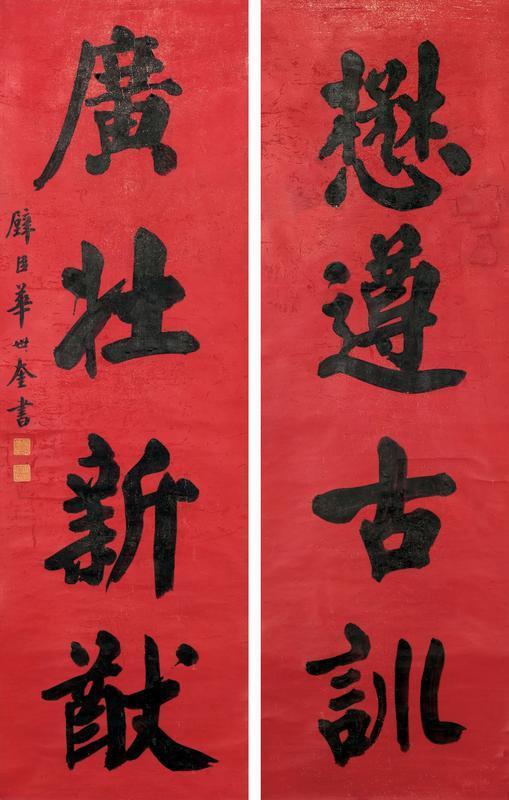 懋遵古訓
廣壯新猷
璧臣華世奎書